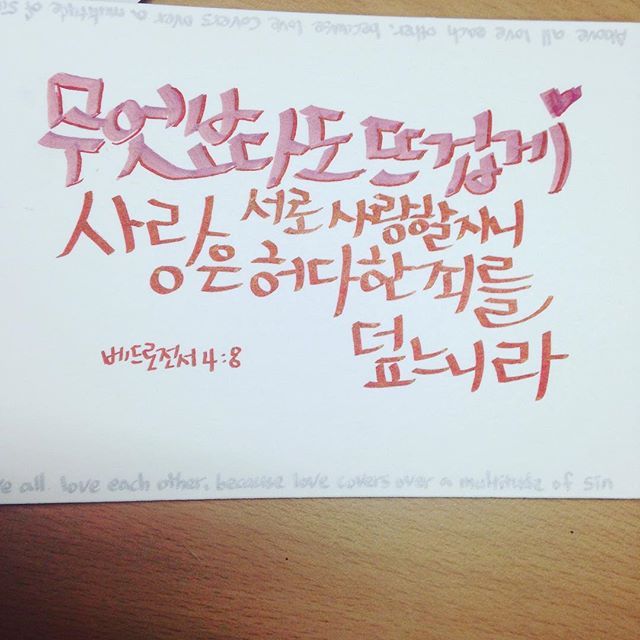 Above all love each other, because love covers over a multitude of sin
무엇보다도 뜨겁게
서로 사랑할지니
사랑은 허다한 죄를
덮느니라
베드로전서 4:8
ve all love each other, because love covers over a multitude of sin